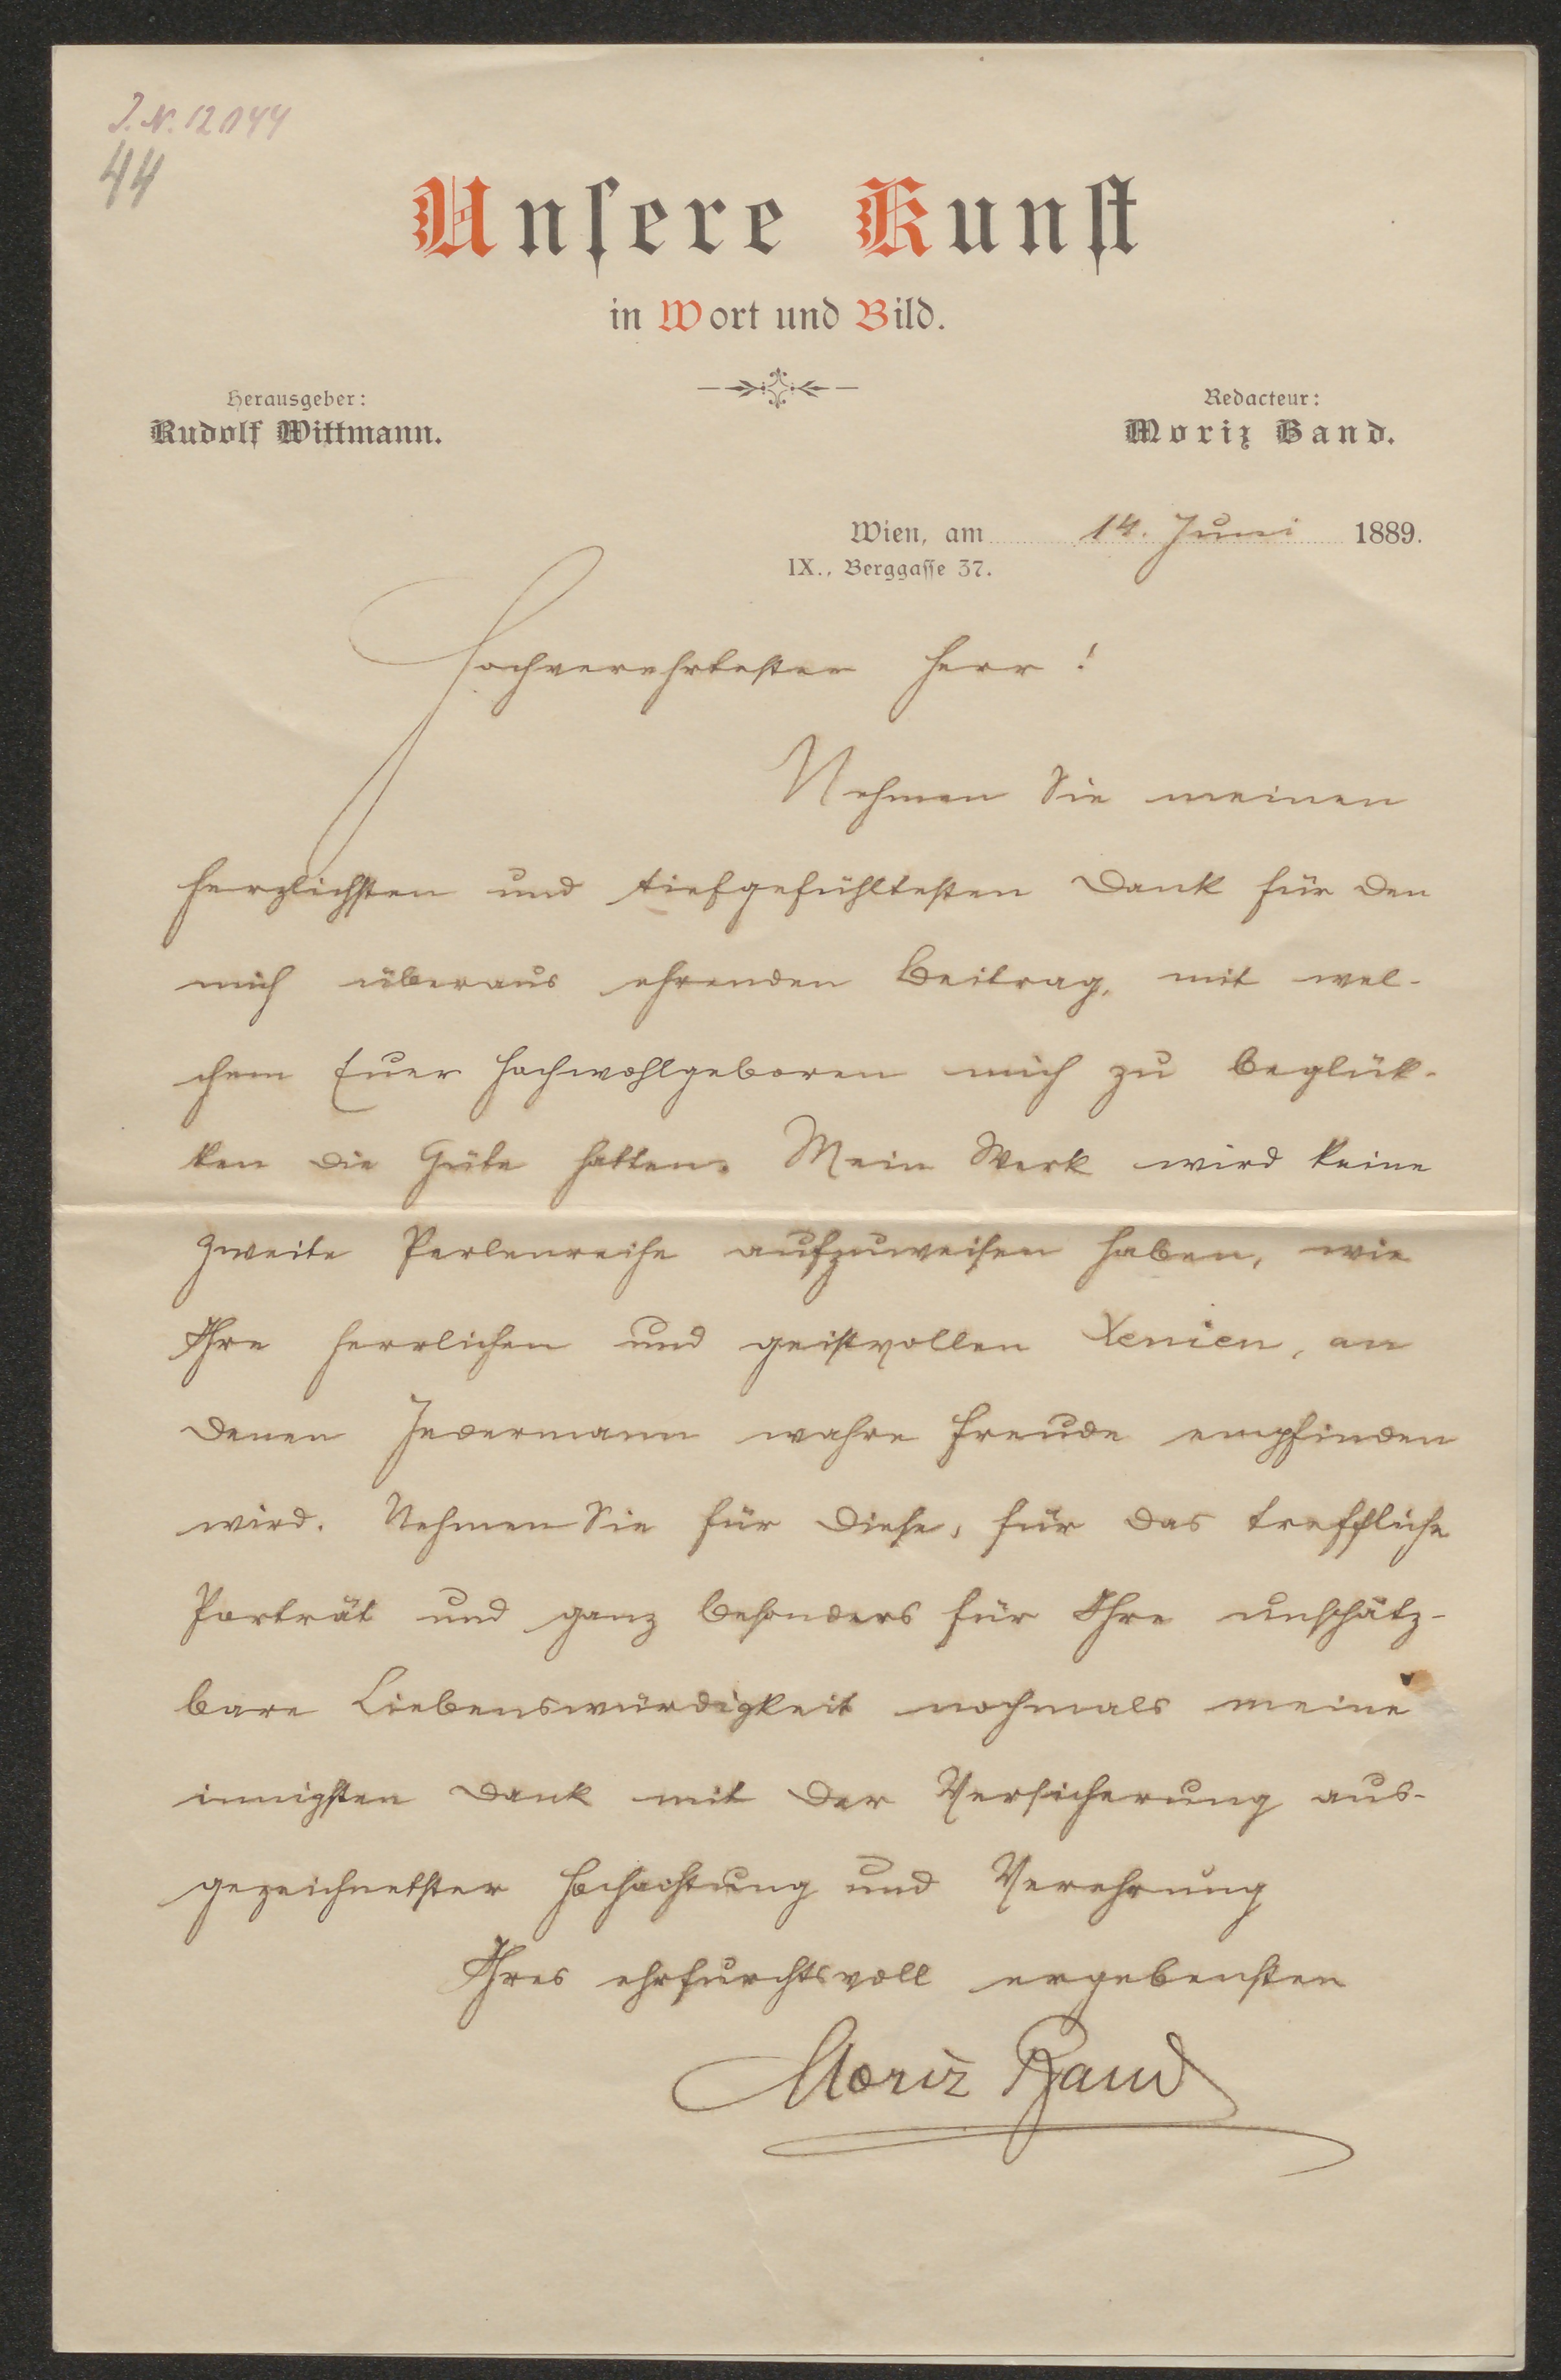 J. N. 12044
44
Unsere Kunst
in Wort und Bild.
Herausgeber:
Rudolf Wittmann.
Redacteur:
Moriz Band.
Wien, am 14. Juni 1889.
IX., Berggasse 37.
Hochverehrtester Herr!
Nehmen Sie meinen
herzlichsten und tiefgefühltesten Dank für den
mich überaus ehrenden Beitrag, mit wel-
chem Euer Hochwohlgeboren mich zu beglük-
ken die Güte hatten. Mein Werk wird keine
zweite Perlenreihe aufzuweisen haben, wie
Ihre herrlichen und geistvollen Xenien, an
denen Jedermann wahre Freude empfinden
wird. Nehmen Sie für diese, für das treffliche
Porträt und ganz besonders für Ihre unschätz-
bare Liebenswürdigkeit nochmals meine
innigsten Dank mit der Versicherung aus-
gezeichnetster Hochachtung und Verehrung
Ihres ehrfurchtsvoll ergebensten
Moriz Band